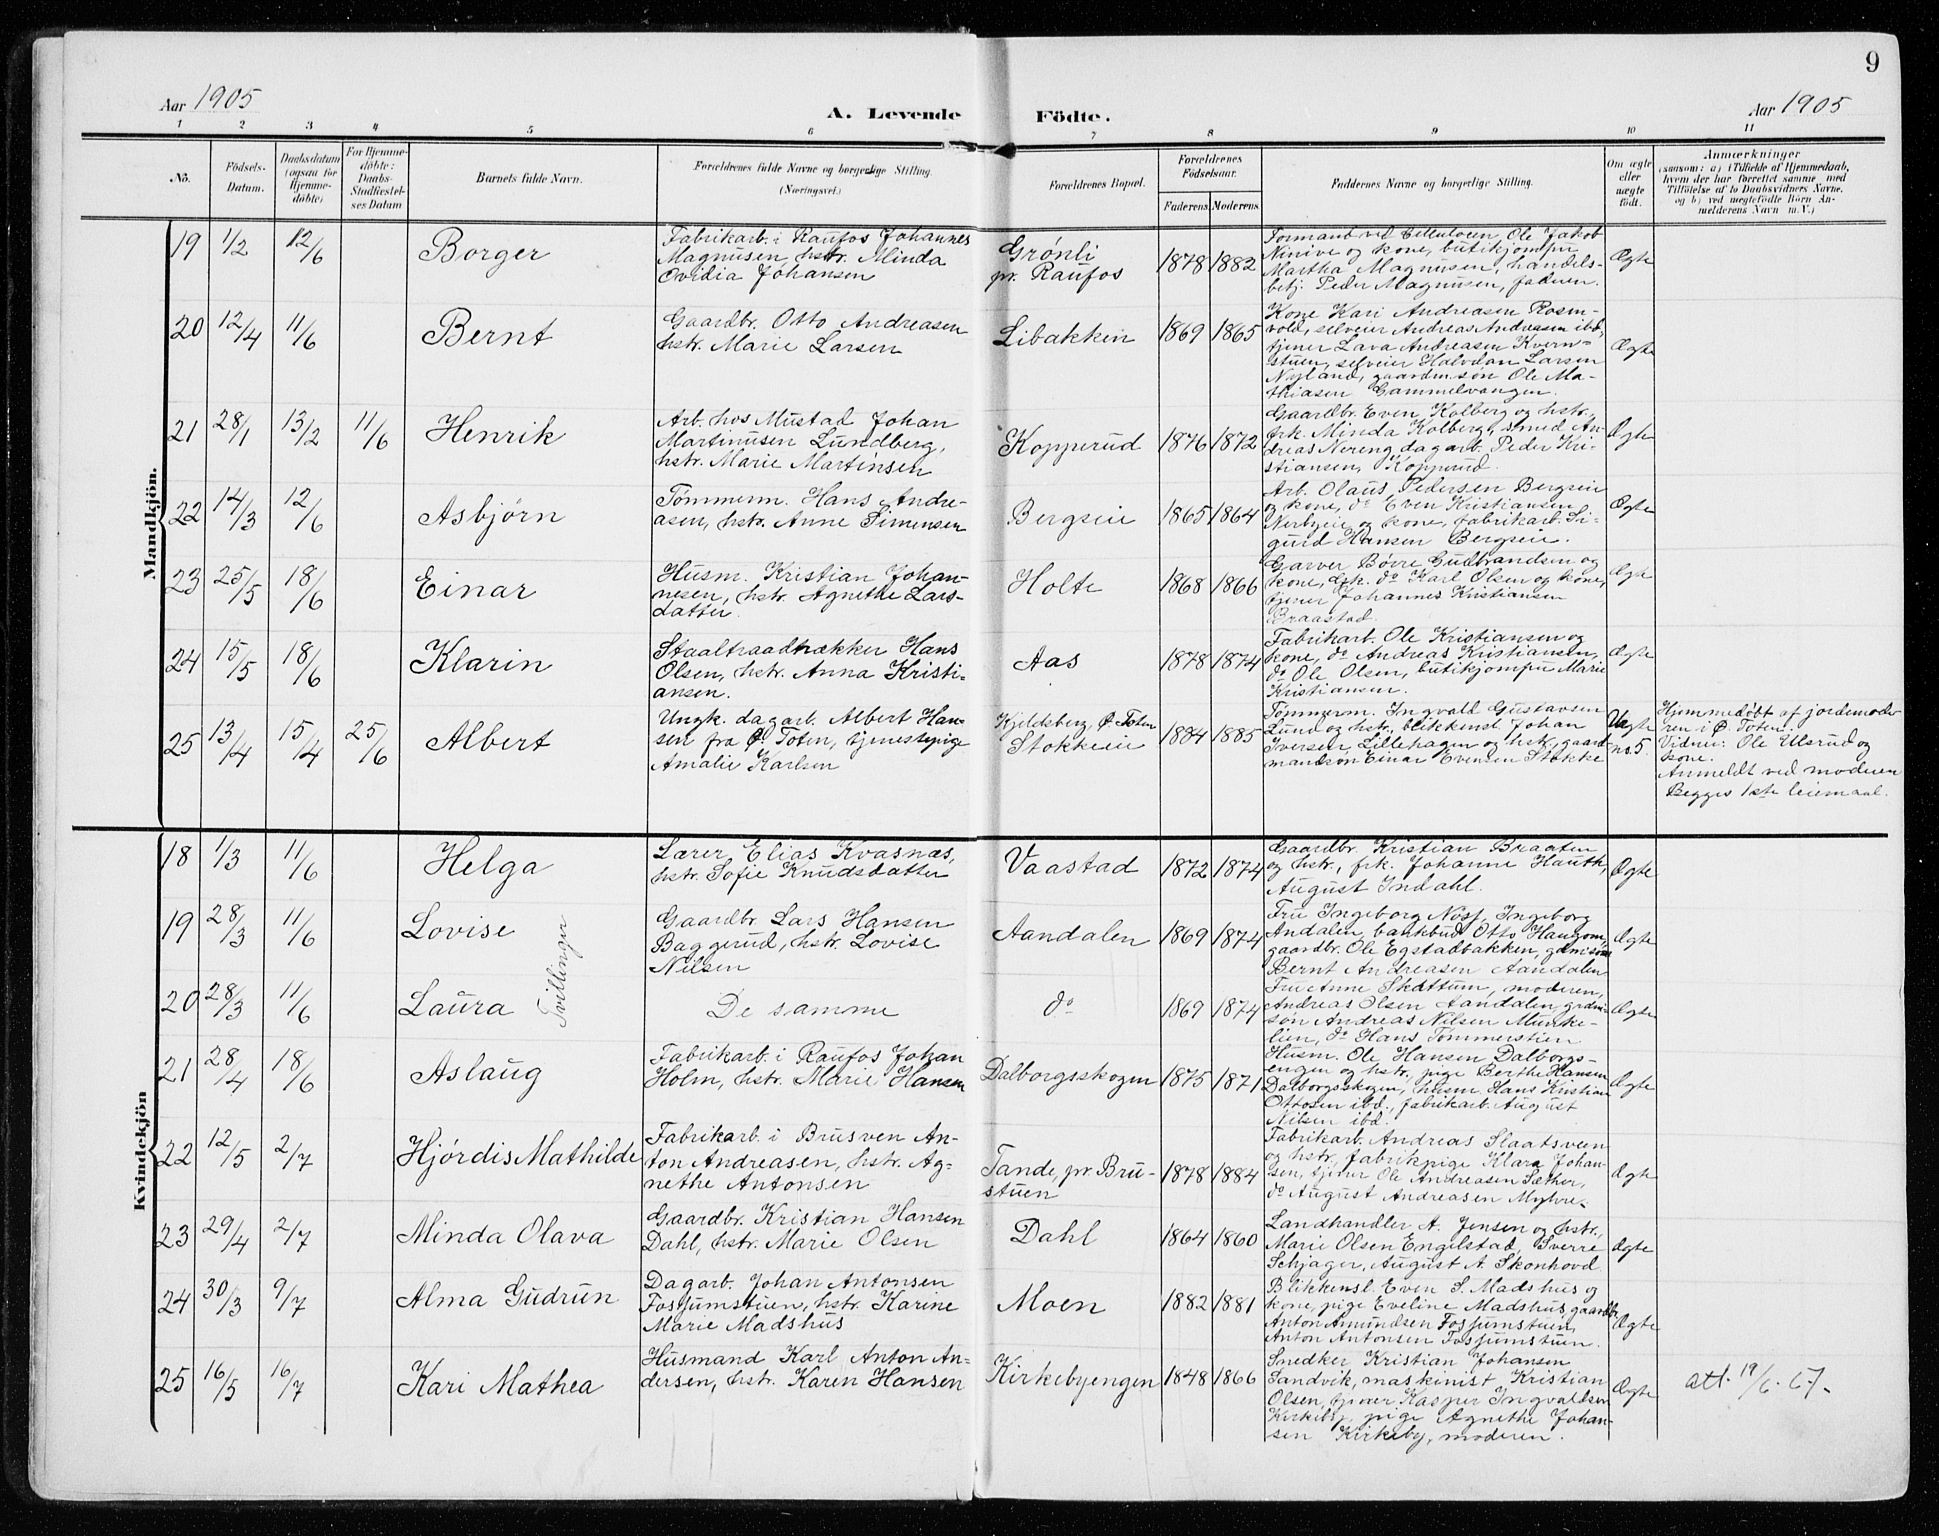 9
Aar 1905
A. Levende
Födte.
Aar 1905
1 2 3 4 5 6 7 8 9 10 11
No.
Födsels-
Datum.
Daabsdatum
(ogsaa for
Hjemme-
döbte)
For Hjemme-
döbte:
Daabs-
Stadfæstel-
ses Datum
Barnets fulde Navn.
Forældrenes fulde Navne og borgerlige Stilling.
(Næringsvei.)
Forældrenes Bopæl.
Forældrenes
Födselsaar.
Faderens. Moderens.
Faddernes Navne og borgerlige Stilling.
Om ægte
eller
uægte
födt.
Anmærkninger
(saasom: a) i Tilfælde af Hjemmedaab,
hvem der har forrettet samme med
Tilföielse af to Daabsvidners Navne,
og b) ved uægtefödte Börn An-
melderens Navn m.V.)
Mandkjön.
19 1/2 12/6 Borger
Fabrikarb. i Raufos Johannes
Magnusen, hstr. Minda
Ovidia Johansen
Grønli
pr. Raufos
1878 1882
Formand ved Celluloen Ole Jakob
Ninive og kone, butikjomfru
Martha Magnusen, handels-
betj. Peder Magnusen, faderen.
Ægte
20 12/4 11/6 Bernt
Gaardbr. Otto Andreasen
hstr. Marie Larsen
Libakken
1869 1865
Kone Kari Andreasen Rosen-
vold, selveier Andreas Andreasen ibd,
tjener Lava Andreasen Kvern-
stuen, selveier Halvdan Larsen
Nyland, gaardm.søn Ole Ma-
thiasen Gammelvangen.
Ægte
21 28/1 13/2 11/6 Henrik
Arb. hos Mustad Johan
Martinusen Lundberg,
hstr. Marie Martinsen
Kopperud
1876 1872
Gaardbr. Even Kolberg og hstr.,
frk. Minda Kolberg, smed An-
dreas Nereng, dagarb. Peder Kri-
stiansen, Kopperud.
Ægte
22 14/3 12/6 Asbjørn
Tømmerm. Hans Andre-
asen, hstr. Anne Simensen
Bergseie
1865 1864
Arb. Olaus Pedersen Bergseie
og kone, do Even Kristiansen
Nerbyeie og kone, fabrikarb. Si-
gurd Hansen Bergseie.
Ægte
23 25/5 18/6 Einar
Husm. Kristian Johan-
nesen, hstr. Agnethe Lars-
datter.
Holte
1868 1866
Garver Bøvre Gudbrandsen og
kone, do Karl Olsen og kone,
tjener Johannes Kristiansen
Braastad.
Ægte
24 15/5 18/6 Klarin
Staaltraadtrækker Hans
Olsen, hstr. Anna Kristi-
ansen.
Aas
1878 1874
Fabrikarb. Ole Kristiansen og
kone, do Andreas Kristiansen,
do Ole Olsen, butikjomfru Marie
Kristiansen.
Ægte
25 13/4 15/4 25/6 Albert
Ungk. dagarb. Albert Han-
sen fra Ø. Toten, tjenestepige
Amalie Karlsen
Kjeldsberg, Ø. Toten
Stokkeie
1884 1885
Tømmerm. Ingvald Gustavsen
Lund og hstr., blikkensl. Johan
Iversen, Lillehagen og hstr., gaard-
mandsøn Einar Evensen Stokke
Uægte
no. 5.
Hjemmedøbt af jordemode-
ren i Ø. Toten.
Vidner: Ole Ulsrud og
kone.
Anmeldt ved moderen
Begges 1ste leiemaal.
Kvindekjön
18 1/3 11/6 Helga
Lærer Elias Kvasnæs,
hstr. Sofie Knudsdatter
Vaastad
1872 1874
Gaardbr. Kristian Braaten
og hstr., frk. Johanne Hauth,
August Indahl.
Ægte
19 28/3 11/6 Lovise
Tvillinger
Gaardbr Lars Hansen
Baggerud, hstr. Lovise
Nilsen
Aandalen
1869 1874
Fru Ingeborg Nøss, Ingeborg
Andalen, bankbud Otto Haugom,
gaardbr. Ole Egstadbakken, gdmsøn
Bernt Andreasen Aandalen
Ægte
20 28/3 11/6 Laura
De samme
do
1869 1874
Fru Anne Skattum, moderen,
Andreas Olsen Aandalen, grdm.
søn Andreas Nilsen Munke-
lien, do Hans Tømmerstien
Ægte
21 28/4 18/6 Aslaug
Fabrikarb. i Raufos Johan
Holm, hstr. Marie Hansen
Dalborgsskogen
1875 1871
Husm. Ole Hansen Dalborgs-
engen og hstr., pige Berthe Hansen
Dalborgsskogen, husm. Hans Kristian
Ottosen ibd., fabrikarb. August
Nilsen ibd.
Ægte
22 12/5 2/7 Hjørdis Mathilde
Fabrikarb. i Brusven An-
ton Andreasen, hstr. Ag-
nethe Antonsen
Tande, pr. Bru-
stuen
1878 1884
Fabrikarb. Andreas Slaatsveen
og hstr., fabrikpige Klara Johan-
sen, tjener Ole Andreasen Sæther,
do August Andreasen Myhre.
Ægte
23 29/4 2/7 Minda Olava
Gaardbr. Kristian Hansen
Dahl, hstr. Marie Olsen
Dahl
1864 1860
Landhandler A. Jensen og hstr.,
Marie Olsen Engelstad, Sverre
Schjager, August A. Skonhovd
Ægte
24 30/3 9/7 Alma Gudrun
Dagarb. Johan Antonsen
Fossumstuen, hstr. Karine
Marie Madshus
Moen
1882 1881
Blikkensl. Even S. Madshus og
kone, pige Eveline Madshus, gaardbr.
Anton Amundsen Fossumstuen,
Anton Antonsen Fossumstuen.
Ægte
25 16/5 16/7 Kari Mathea
Husmand Karl Anton An-
dersen, hstr. Karen Hansen
Kirkebyengen
1848 1866
Snedker Kristian Johansen
Sandvik, maskinist Kristian
Olsen, tjener Kasper Ingvaldsen
Kirkeby, pige Agnethe Johan-
sen Kirkeby, moderen.
Ægte
att. 19/6-67.